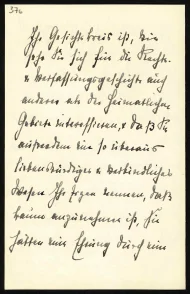 376
Ihr Gesichtskreis ist, wie
sehr Sie sich für die Rechts-
& Verfassungsgeschichte auch
anderer als der heimatlichen
Gebiete interessieren, & daß Sie
außerdem ein so überaus
liebenswürdiges & verbindliches
Wesen Ihr Eigen nennen, daß
kaum anzunehmen ist, Sie
hätten eine Ehrung durch eine